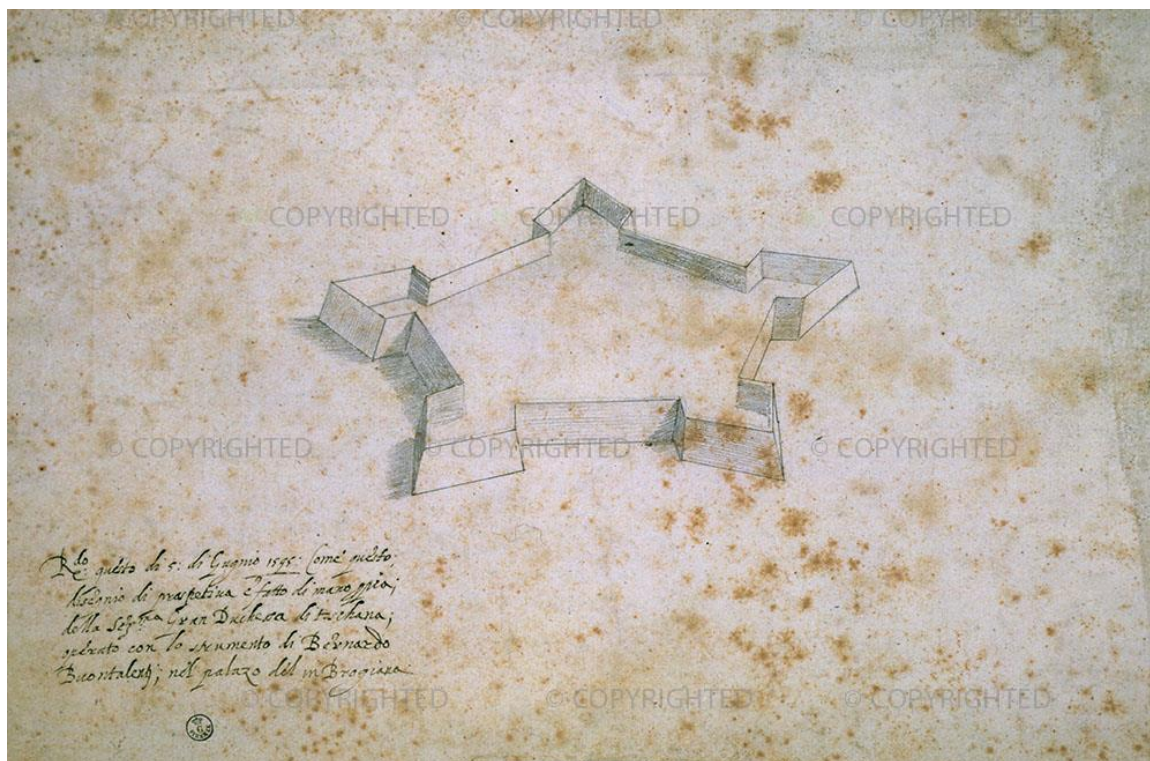 © COPYRIGHTED © COPYRIGHTED © COPYRIGHTED
© COPYRIGHTED © COPYRIGHTED © COPYRIGHTED
© COPYRIGHTED © COPYRIGHTED © COPYRIGHTED
R.do questo di 5: di Gugnio 1595: Come questo
disegnio di prospetiva è fatto di mano
della Gran Duchessa di toschana;
operato con lo strumento di Bernardo
Buontalenti; nel palazo del inBrogiana
© COPYRIGHTED © COPYRIGHTED © COPYRIGHTED